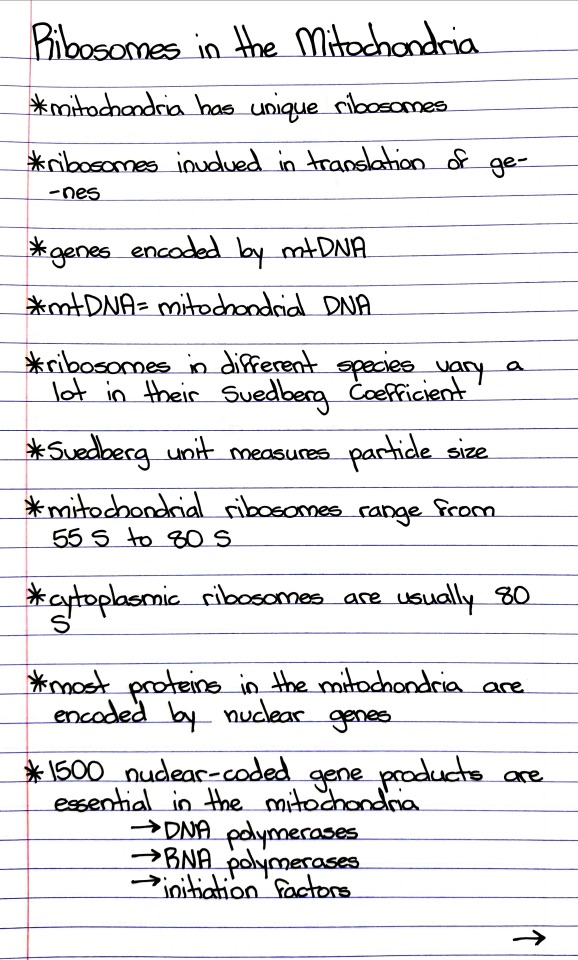 Ribosomes in the Mitochondria
*mitochondria has unique ribosomes
*ribosomes involved in translation of ge-
-nes
*genes encoded by mtDNA
*mtDNA= mitochondrial DNA
*ribosomes in different species vary a
lot in their Suedberg Coefficient
*Suedberg unit measures particle size
*mitochondrial ribosomes range from
55 S to 80 S
*cytoplasmic ribosomes are usually 80
S
*most proteins in the mitochondria are
encoded by nuclear genes
*1500 nuclear-coded gene products are
essential in the mitochondria
→DNA polymerases
→RNA polymerases
→initiation factors
→